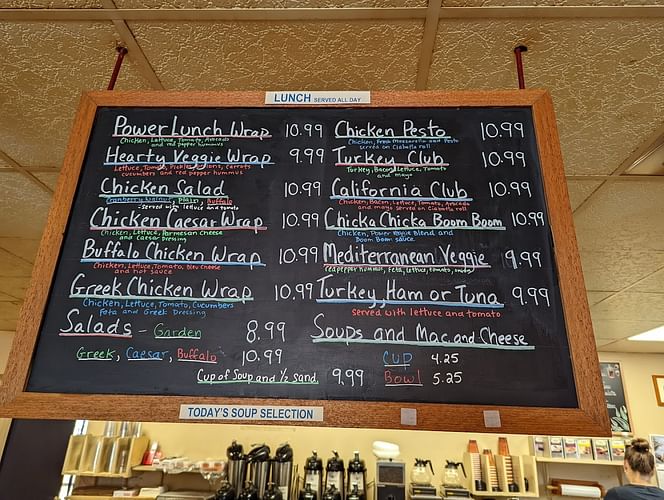 LUNCH SERVED ALL DAY
Power Lunch Wrap 10.99
Chicken, Lettuce, Tomato, Avocado
and red pepper hummus
Hearty Veggie Wrap 9.99
Lettuce, Tomato, Pickles, Onions, Carrots
cucumbers and red pepper hummus
Chicken Salad 10.99
Cranberry Walnut, Plain, Buffalo
-served with lettuce and tomato
Chicken Caesar Wrap 10.99
Chicken, Lettuce, Parmesan Cheese
and Caesar Dressing
Buffalo Chicken Wrap 10.99
Chicken, Lettuce, Tomato, bleu cheese
and hot sauce
Greek Chicken Wrap 10.99
Chicken, Lettuce, Tomato, Cucumbers
Feta and Greek Dressing
Salads - Garden 8.99
Greek, Caesar, Buffalo 10.99
Cup of Soup and 1/2 sand. 9.99
Chicken Pesto 10.99
Chicken, Fresh Mozzarella and Pesto
served on Ciabatta roll
Turkey Club 10.99
Turkey, Bacon, Lettuce, Tomato
and mayo
California Club 10.99
Chicken, Bacon, Lettuce, Tomato, Avocado
and mayo served on Ciabatta roll
Chicka Chicka Boom Boom 10.99
Chicken, Power Veggie Blend and
Boom Boom sauce
Mediterranean Veggie 9.99
red pepper hummus, Feta, lettuce, tomato,
Turkey, Ham or Tuna 9.99
served with lettuce and tomato
Soups and Mac and Cheese
Cup 4.25
Bowl 5.25
TODAY'S SOUP SELECTION